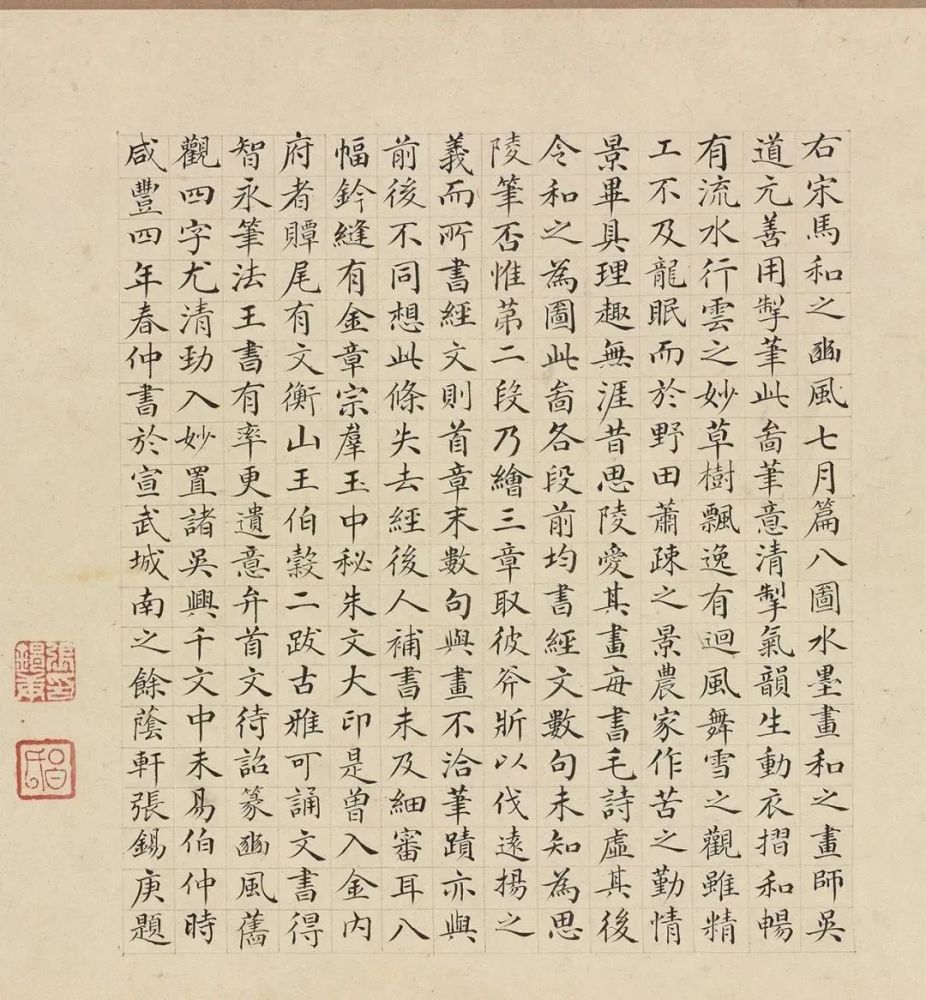 右宋馬和之豳風七月篇八圖水墨畫和之畫師吳
道元善用掣筆此啚筆意清掣氣韻生動衣摺和暢
有流水行雲之妙草樹飄逸有迴風舞雪之觀雖精
工不及龍眠而於野田蕭疎之景農家作苦之勤情
景畢具理趣無涯昔思陵愛其畫每書毛詩虛其後
令和之為圖此啚各段前均書經文數句未知為思
陵筆否惟苐二段乃繪三章取彼斧斨以伐遠揚之
義而所書經文則首章末數句與畫不洽筆蹟亦與
前後不同想此條失去經後人補書未及細審耳八
幅鈐縫有金章宗羣玉中秘朱文大印是曾入金內
府者贉尾有文衡山王伯穀二跋古雅可誦文書得
智永筆法王書有率更遺意弁首文待詔篆豳風舊
觀四字尤清勁入妙置諸吳興千文中未易伯仲時
咸豐四年春仲書於宣武城南之餘蔭軒張錫庚題
張印錫庚